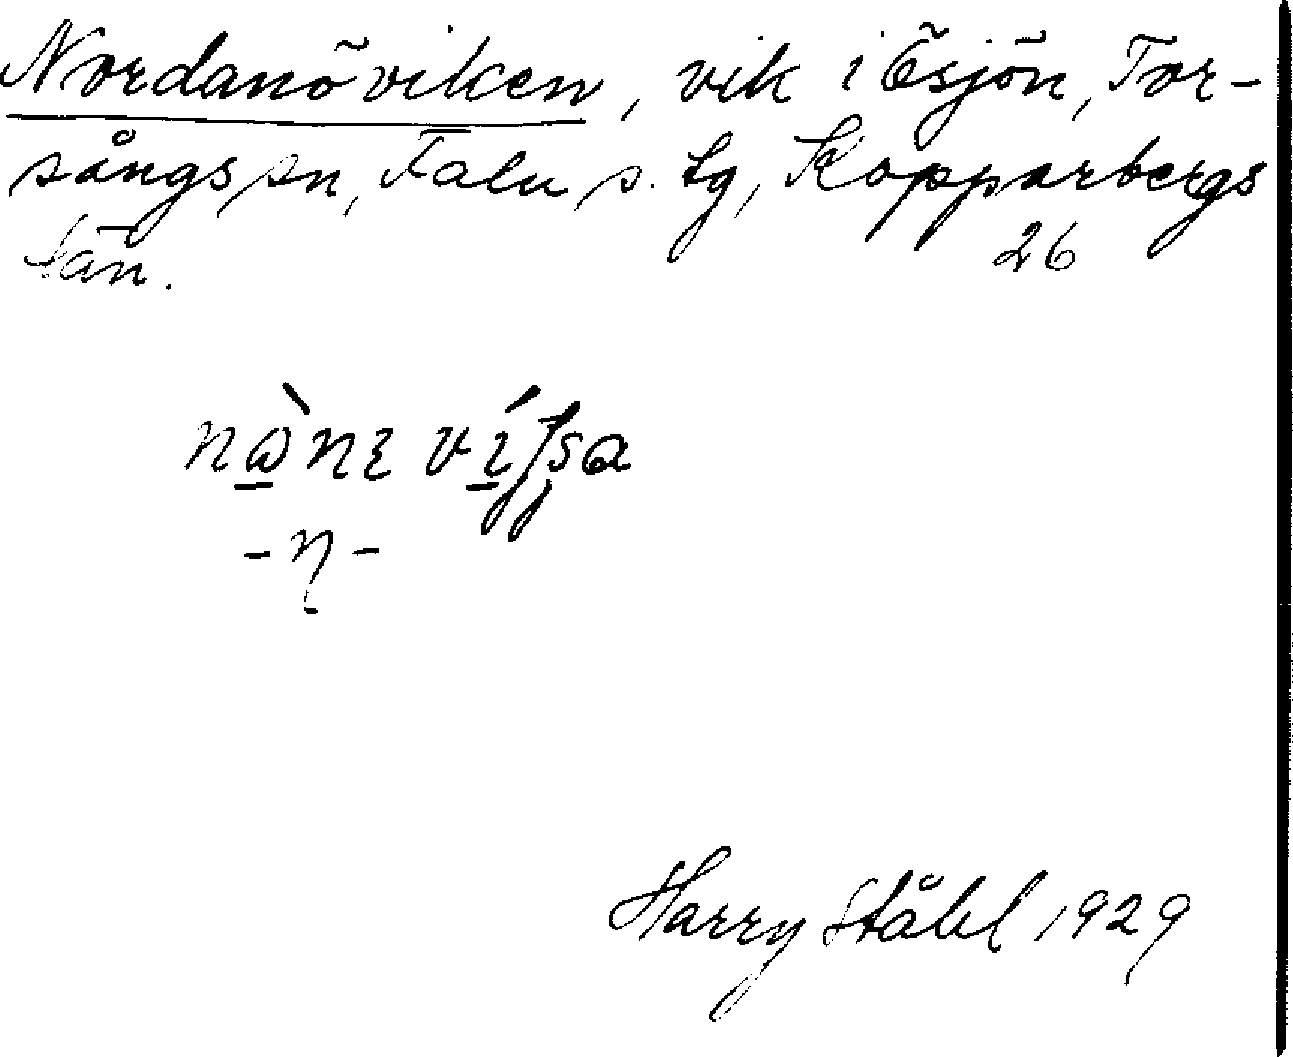 Nordanöviken, vik i Ösjön, Tor-
sångs sn, Falu s. tg, Kopparbergs
län. 26
-η-
Harry Ståhl 1929